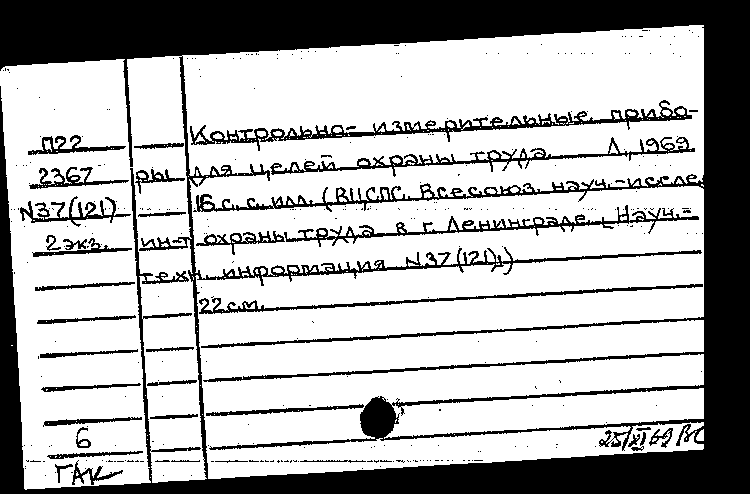 Контрольно- измерительные прибо-
П22
2367 ры для целей охраны труда. Л., 1969.
N37(121) 16 с. с илл. (ВЦСПС. Всесоюз. науч.-иссле.
2 экз. ин-т охраны труда в г. Ленинграде. Науч.-
техн. информация N37(121).)
22 см.
6
25/XI 69 ВС
ГАК